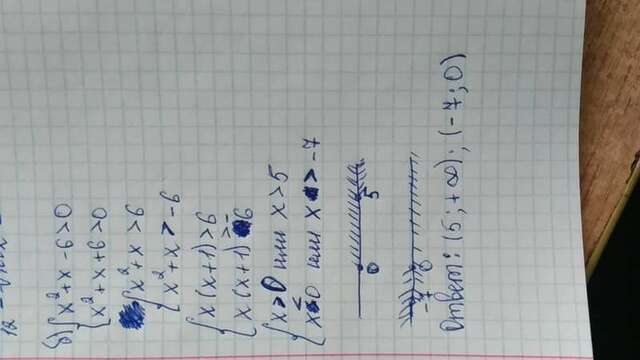 б) { x² + x - 6 > 0
{ x² + x + 6 > 0
{ x² + x > 6
{ x² + x > - 6
{ x (x+1) > 6
{ x (x+1) > - 6
{ x > 0 или x > 5
{ x < 0 или x > - 7
0 5
-7 0
Ответ: (5; +∞); (-7; 0)